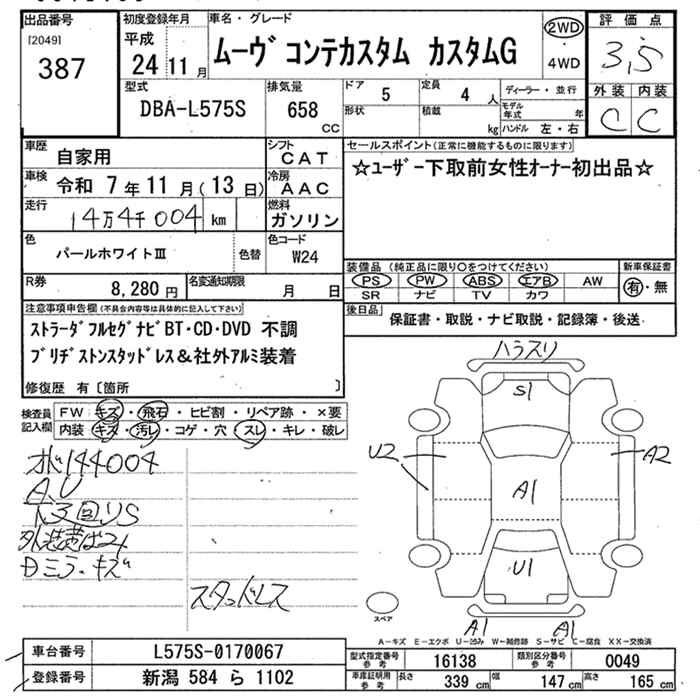 出品番号 [2049] 387
初度登録年月 平成 24 11 月
車名・グレード ムーヴ コンテカスタム カスタムG
2WD ・ 4WD
評価点 3,5
外装 内装 C C
型式 DBA-L575S
排気量 658 CC
ドア 5
定員 4 人
形状
積載 kg
ディーラー・並行
モデル年式 年
ハンドル 左・右
車歴 自家用
シフト CAT
車検 令和 7年 11月(13日)
冷房 AAC
走行 14万4千004 km
燃料 ガソリン
色 パールホワイトⅢ 色替
色コード W24
R券 8,280 円
名変通知期限 月 日
セールスポイント(正常に機能するものに限ります)
☆ユーザー下取前女性オーナー初出品☆
装備品 (純正品に限り○をつけてください)
PS PW ABS エアB AW
SR ナビ TV カワ
新車保証書 有・無
後日品 保証書・取説・ナビ取説・記録簿・後送
注意事項申告欄(不具合内容等は具体的に記入して下さい)
ストラーダフルセグナビBT・CD・DVD 不調
ブリヂストンスタッドレス&社外アルミ装着
修復歴 有〔箇所 〕
検査員記入欄
FW キズ・飛石・ヒビ割・リペア跡・×要
内装 キズ・汚レ・コゲ・穴・スレ・キレ・破レ
144004
A,U
下回りS
ミラーキズ
スタッドレス
ハラスリ
S1
U2
A2
A1
U1
A1 A1
スペア
A-キズ E-エクボ U-凹み W-補修跡 S-サビ C-腐食 XX-交換済
車台番号 L575S-0170067
登録番号 新潟 584 ら 1102
型式指定番号 参考 16138
類別区分番号 参考 0049
車庫証明用 参考 長さ 339 cm 幅 147 cm 高さ 165 cm